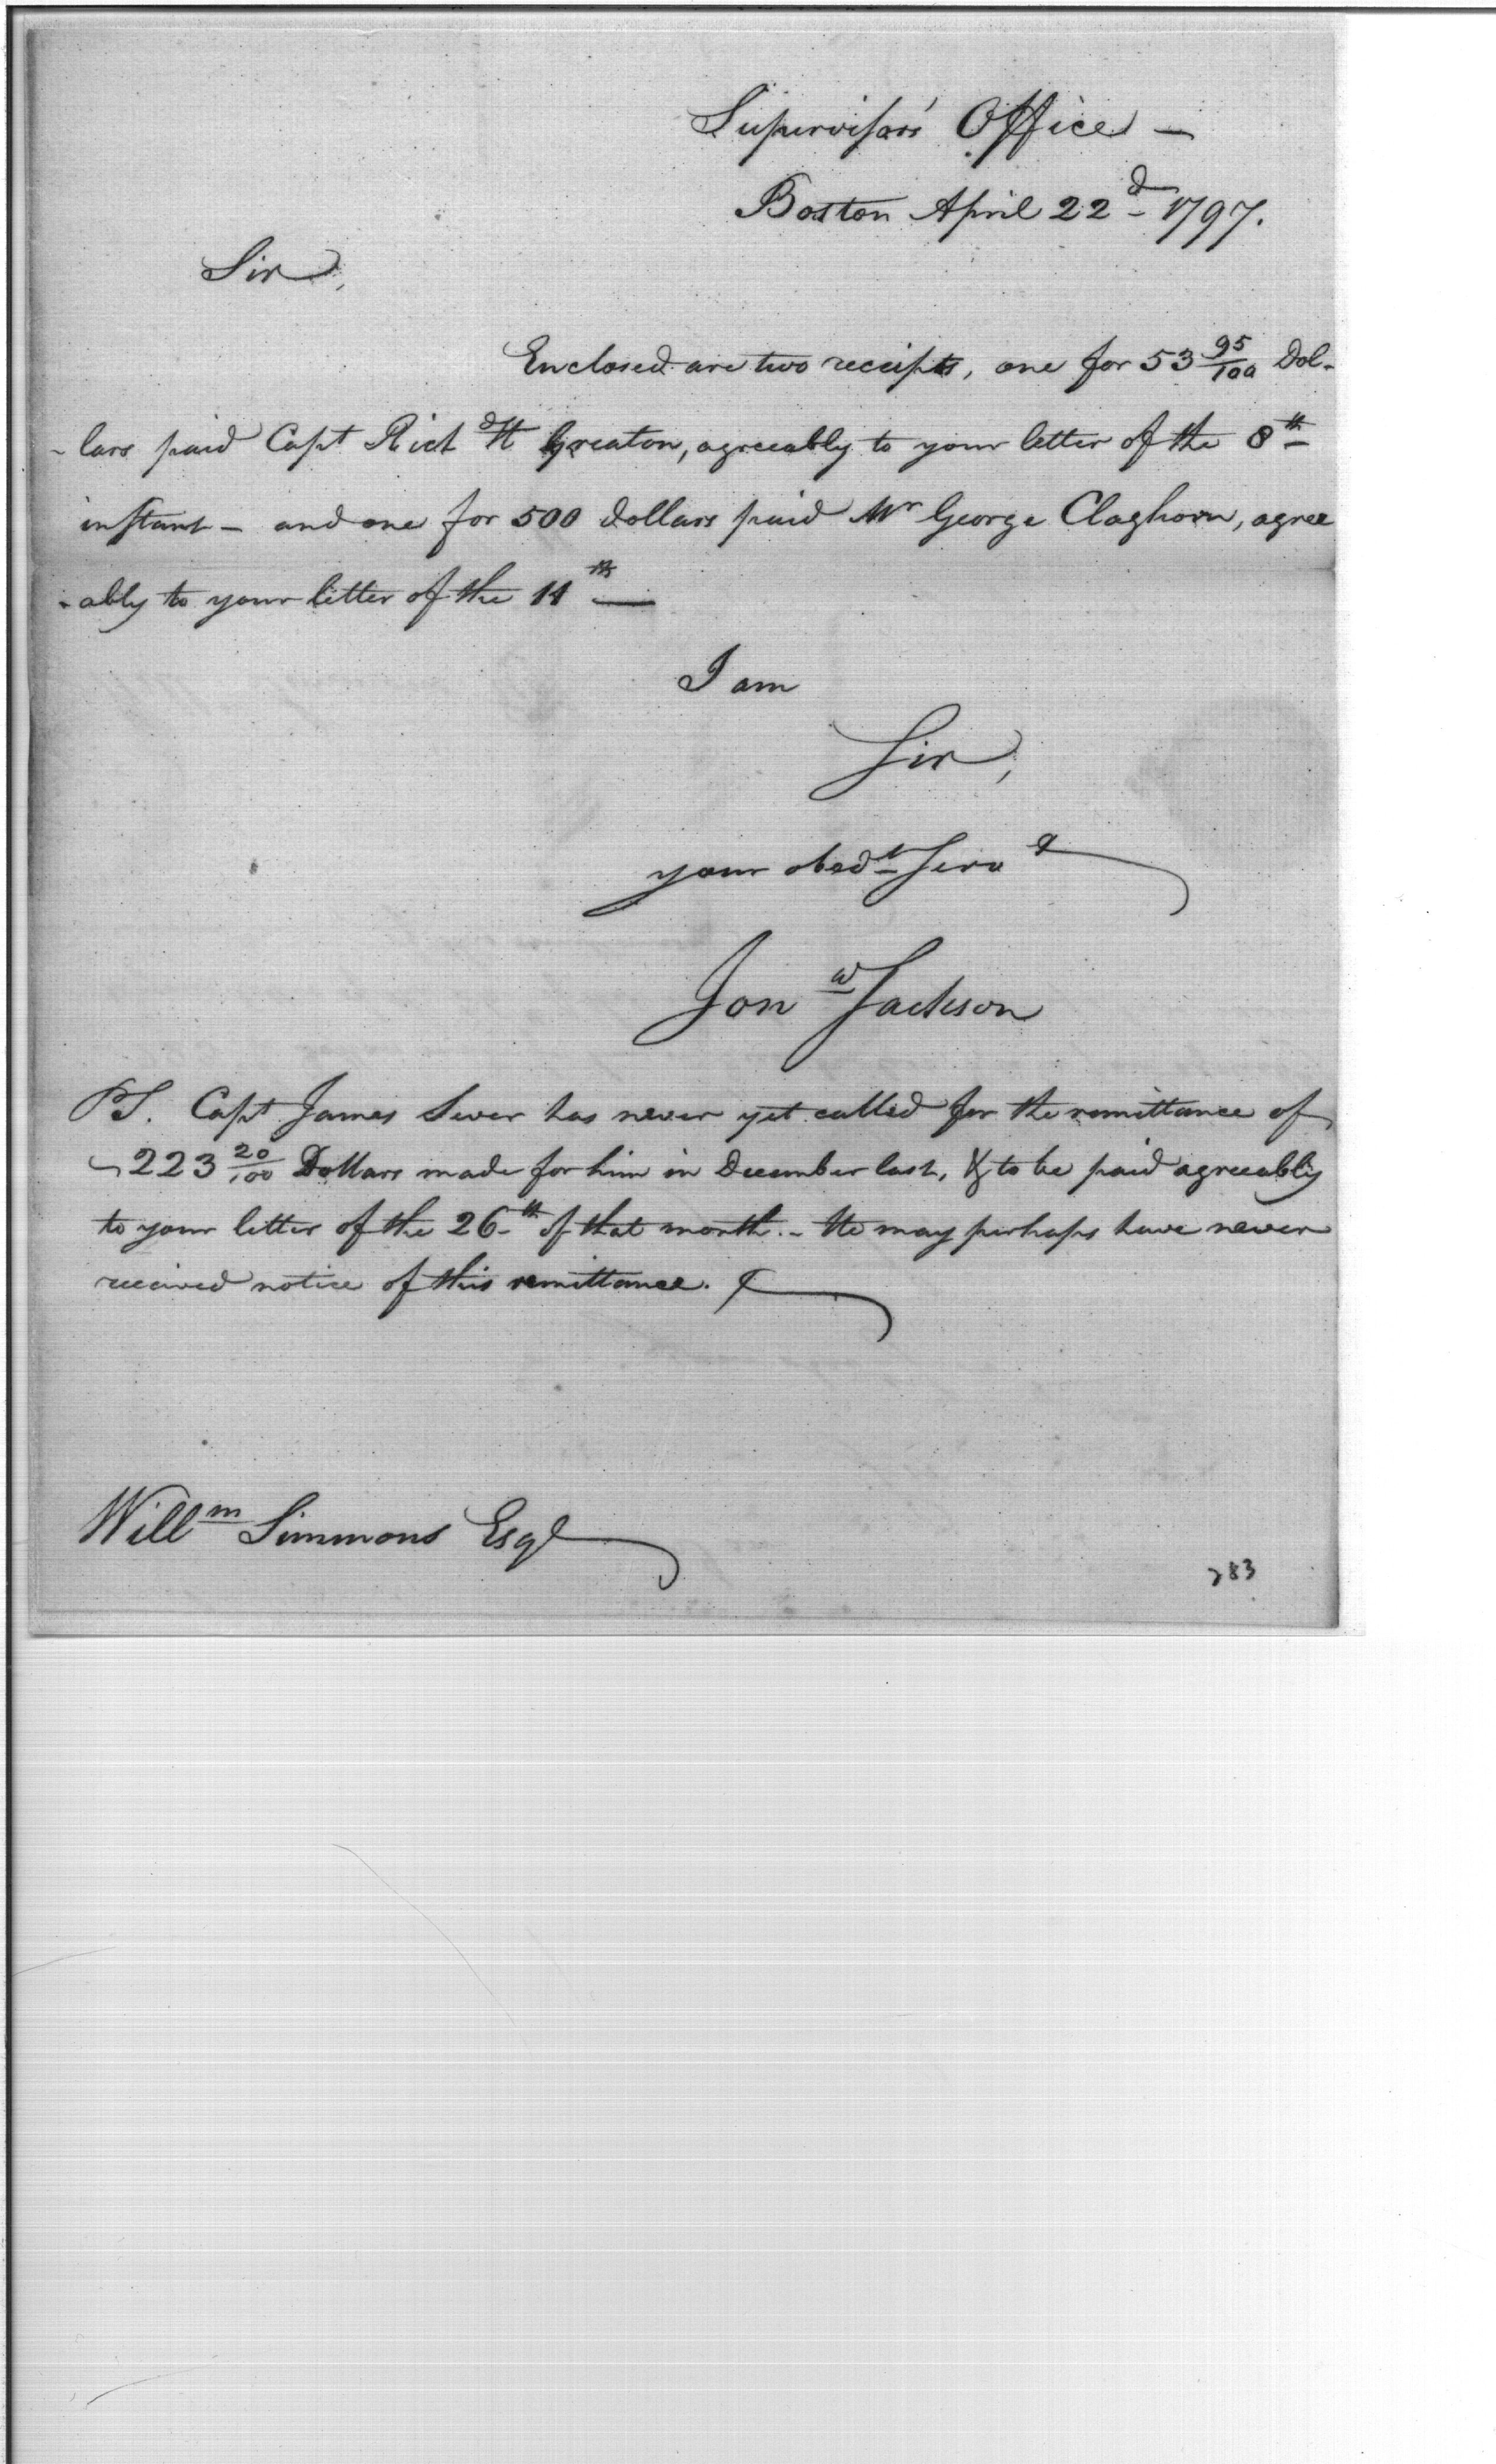 Supervisors' Office —
Boston April 22d - 1797.
Sir,
Enclosed are two receipts, one for 53 95/100 Dol-
- lars paid Capt Richd H Greaton, agreeably to your letter of the 8th
instant - and one for 500 dollars paid Mr George Claghorn, agree
- ably to your letter of the 11th —
I am
Sir,
your obedt Servt
Jona Jackson
PS. Capt James Sever has never yet called for the remittance of
223 20/100 Dollars made for him in December last, & to be paid agreeably
to your letter of the 26th of that month. - He may perhaps have never
received notice of this remittance.
Willm Simmons Esqr
283